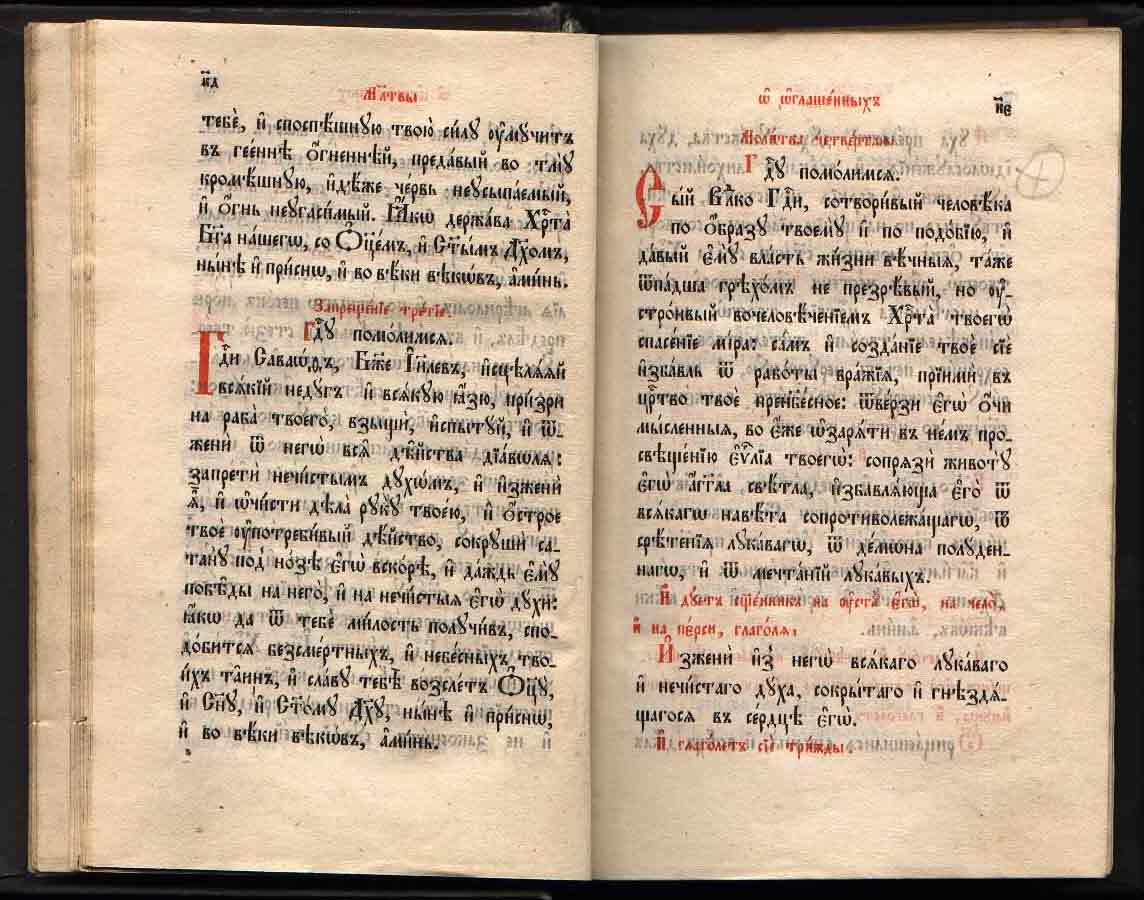 н҃д
Мл҃твы
тебѐ, и҆ споспѣ́шную твою̀ си́лу ᲂу҆мꙋ́читъ
въ гее́ннѣ ѻ҆́гненнѣй, преда́вый во тмꙋ̀
кромѣ́шнꙋю, и҆дѣ́же че́рвь неꙋсыпа́емый,
и҆ ѻ҆́гнь неꙋгаси́мый. Ꙗ҆́кѡ держа́ва Хрⷭ҇та̀
Бг҃а на́шегѡ, со Ѻ҆ц҃е́мъ, и҆ Ст҃ы́мъ Дх҃омъ,
ны́нѣ и҆ при́снѡ, и҆ во вѣ́ки вѣкѡ́въ, а҆ми́нь.
Запреще́нїе тре́тїе.
Гдⷭ҇ꙋ помо́лимсѧ.
Гдⷭ҇и Саваѡ́ѳъ, Бж҃е І҆и҃левъ, и҆сцѣлѧ́ѧй
всѧ́кїй недꙋ́гъ и҆ всѧ́кꙋю ꙗ҆́зю, при́зри
на раба̀ твоего̀, взыщѝ, и҆спытꙋ́й, и҆ ѿ-
женѝ ѿ негѡ̀ всѧ̑ дѣ̑йства дїа́вѡлѧ:
запретѝ нечи̑стымъ дꙋхѡ́мъ, и҆ и҆зженѝ
ѧ҆̀, и҆ ѡ҆чи́сти дѣла̀ рꙋкꙋ̀ твоє́ю, и҆ ѻ҆́строе
твоѐ ᲂу҆потреби́вый дѣ́йство, сокрꙋшѝ са-
танꙋ̀ под̾ но́зѣ є҆гѡ̀ вско́рѣ, и҆ да́ждь є҆мꙋ̀
побѣ̑ды на него̀, и҆ на нечи̑стыѧ є҆гѡ̀ дꙋ́хи:
ꙗ҆́кѡ да ѿ тебє̀ ми́лость полꙋчи́въ, спо-
до́битсѧ безсме́ртныхъ, и҆ небе́сныхъ тво-
и́хъ та̑инъ, и҆ сла́вꙋ тебѣ̀ возсле́тъ Ѻ҆ц҃ꙋ̀,
и҆ Сн҃ꙋ, и҆ Ст҃о́мꙋ Дх҃ꙋ, ны́нѣ и҆ при́снѡ,
и҆ во вѣ́ки вѣкѡ́въ, а҆ми́нь.
ѡ҆ ѡ҆глаше́нныхъ
н҃є
Моли́тва четве́ртаѧ.
Гдⷭ҇ꙋ помо́лимсѧ.
Сы́й Влⷣко Гдⷭ҇и, сотвори́вый человѣ́ка
по ѻ҆́бразꙋ твоемꙋ̀ и҆ по подо́бїю, и҆
да́вый є҆мꙋ̀ вла́сть жи́зни вѣ́чныѧ, та́же
ѿпа́дша грѣхо́мъ не презрѣ́вый, но ᲂу҆-
стро́ивый вочеловѣ́ченїемъ Хрⷭ҇та̀ твоегѡ̀
спасе́нїе мі́ра: са́мъ и҆ созда́нїе твоѐ сїѐ
и҆зба́вль ѿ рабо́ты вра́жїѧ, прїимѝ въ
црⷭ҇тво твоѐ пренбⷭ҇есное: ѿве́рзи є҆гѡ̀ ѻ҆́чи
мы́сленныѧ, во є҆́же ѡ҆зарѧ́ти въ не́мъ про-
свѣще́нїю є҆ѵⷢ҇лїа твоегѡ̀: сопрѧзѝ животꙋ̀
є҆гѡ̀ а҆́гг҃ла свѣ́тла, и҆збавлѧ́юща є҆го̀ ѿ
всѧ́кагѡ навѣ́та сопротиволежа́щагѡ, ѿ
срѣ́тенїѧ лꙋка́вагѡ, ѿ де́мѡна полꙋде́н-
нагѡ, и҆ ѿ мечта́нїй лꙋка́выхъ.
И҆ дꙋ́етъ сщ҃е́нникъ на ᲂу҆ста̀ є҆гѡ̀, на чело̀,
и҆ на пє́рси, глаго́лѧ:
И҆зженѝ и҆з̾ негѡ̀ всѧ́каго лꙋка́ваго
и҆ нечи́стаго дꙋ́ха, сокры́таго и҆ гнѣздѧ́-
щагосѧ въ се́рдцѣ є҆гѡ̀.
И҆ глаго́летъ сїѐ три́жды.